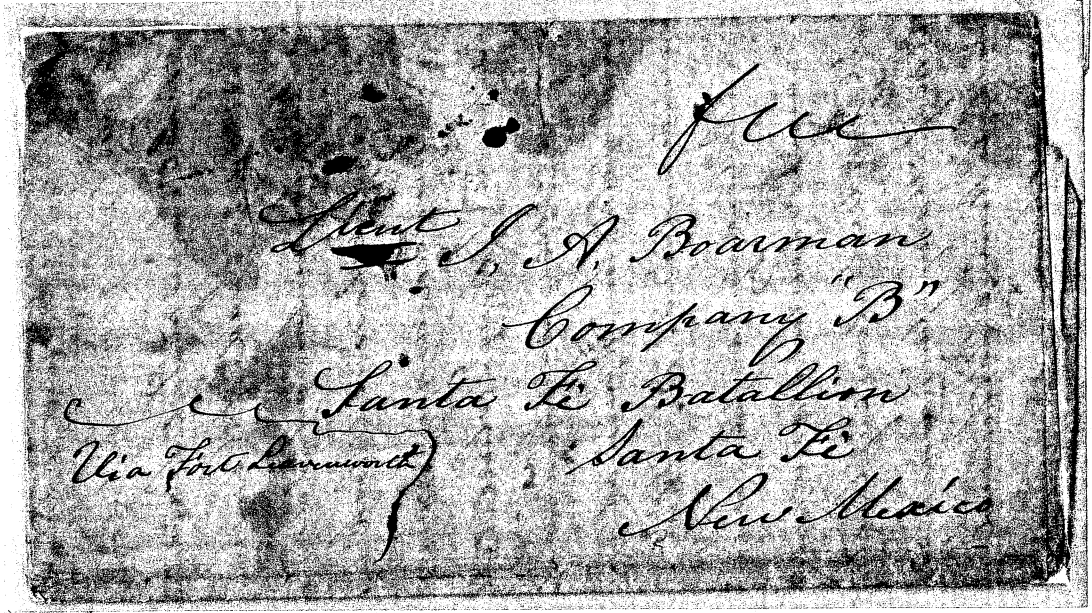 free
Lieut J. A. Boarman
Company "B"
Santa Fé Batallion
Santa Fé
New Mexico
Via Fort Leavenworth